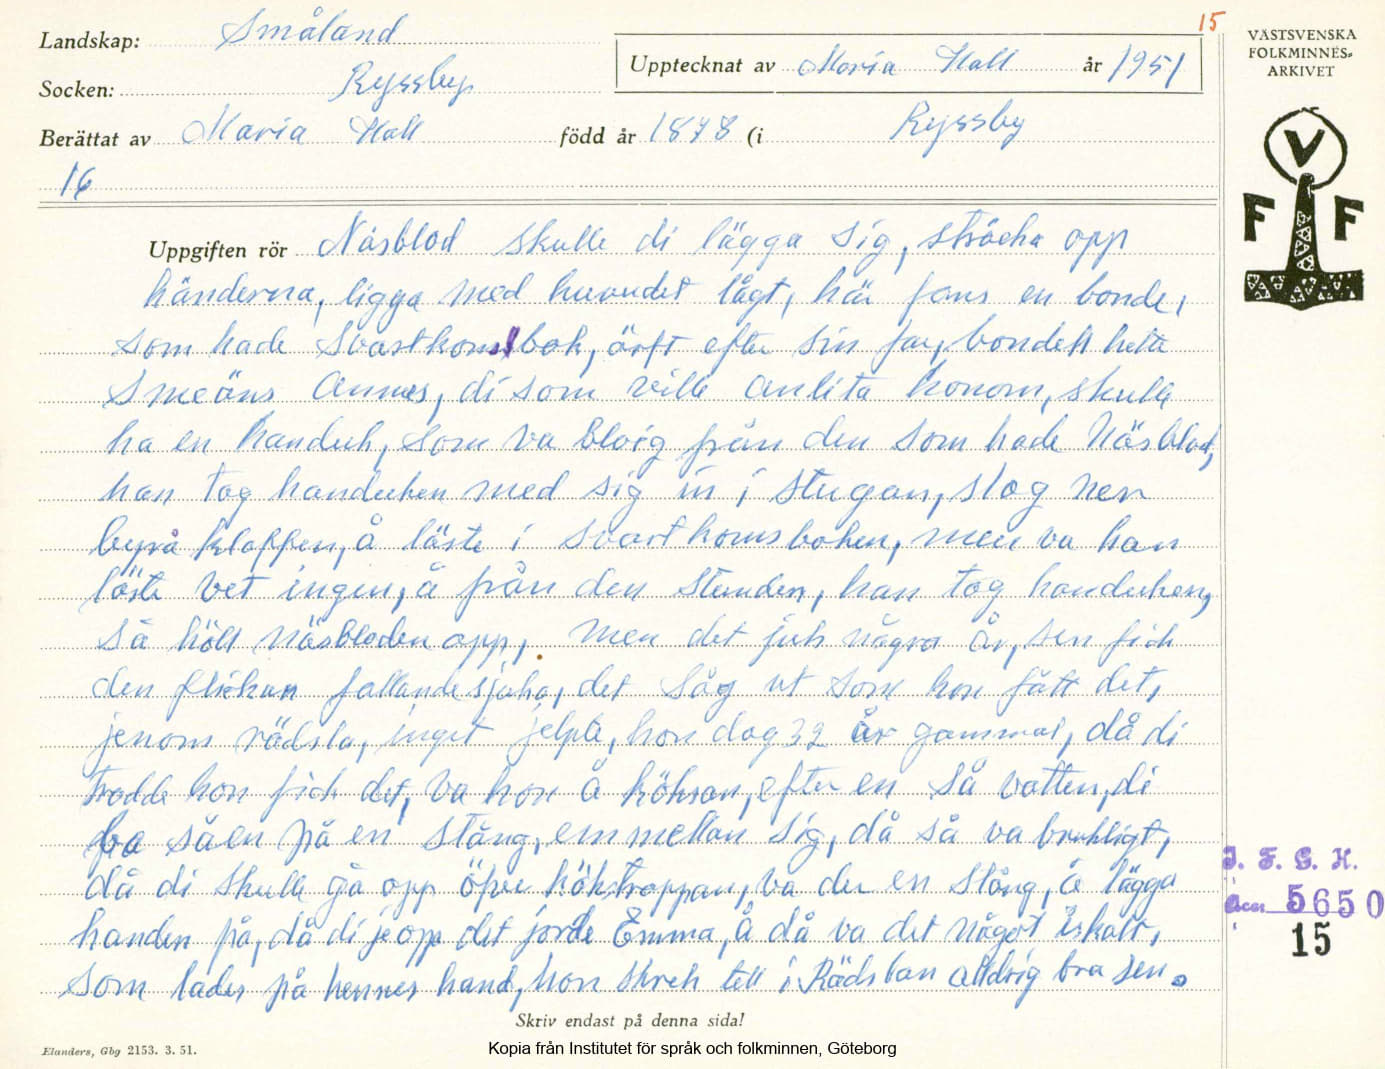 15
Landskap: Småland
Socken: Ryssby
Upptecknat av Maria Hall år 1951
Berättat av Maria Hall född år 1878 (i Ryssby
16
VÄSTSVENSKA
FOLKMINNES-
ARKIVET
V
F F
Uppgiften rör Näsblod skulle di lägga sig, sträcka opp
händerna, ligga med huvudet lågt, här fans en bonde,
som hade Svartkonsbok, ärft efter sin far, bonden hette
Smeäns Annes, di som ville anlita honom, skulle
ha en handuk, som va bloig från den som hade Näsblod,
han tog handuken med sig in i stugan, slog ner
byrå klaffen, å läste i svartkonsboken, men va han
läste vet ingen, å från den stunden, han tog handuken,
så höll näsbloden opp, men det jick några år, sen fick
den flickan fallandesjuka, det såg ut som hon fått det,
jenom rädsla, inget jelpte, hon dog 32 år gammal, då di
trodde hon fick det, va hon å kökson, efter en så vatten, di
ba såen på en stång, emmellan sig, då så va brukligt,
då di skulle gå opp öfve kökstrappan, va der en stång, å lägga
handen på, då di je opp det jorde Emma, å då va det något iskalt,
som lades på hennes hand, hon skrek till i Rädslan alldrig bra sen.
Skriv endast på denna sida!
Elanders, Gbg 2153. 3. 51.
Kopia från Institutet för språk och folkminnen, Göteborg
I. F. G. H.
Acc 5650
15